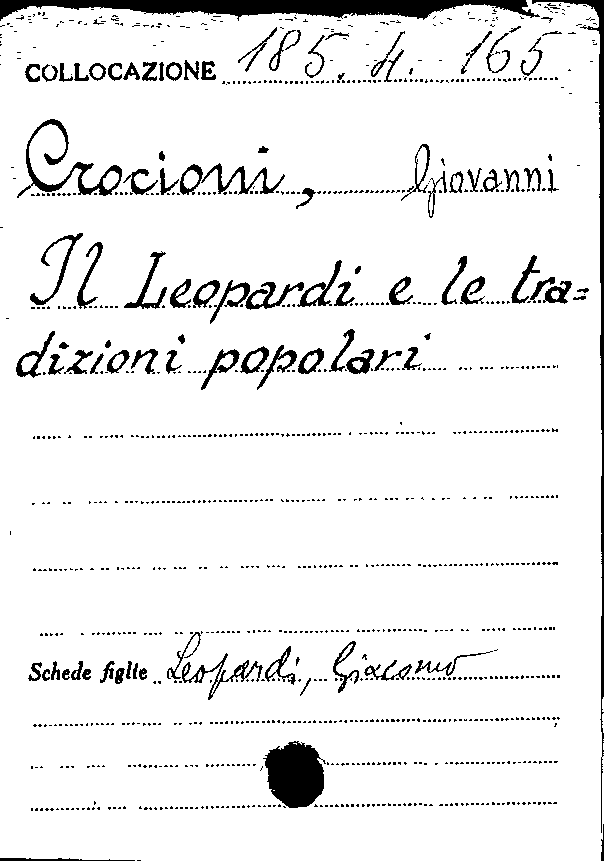 COLLOCAZIONE 185. 4. 165
Crocioni, Giovanni
Il Leopardi e le tra=
dizioni popolari
Schede figlie Leopardi, Giacomo